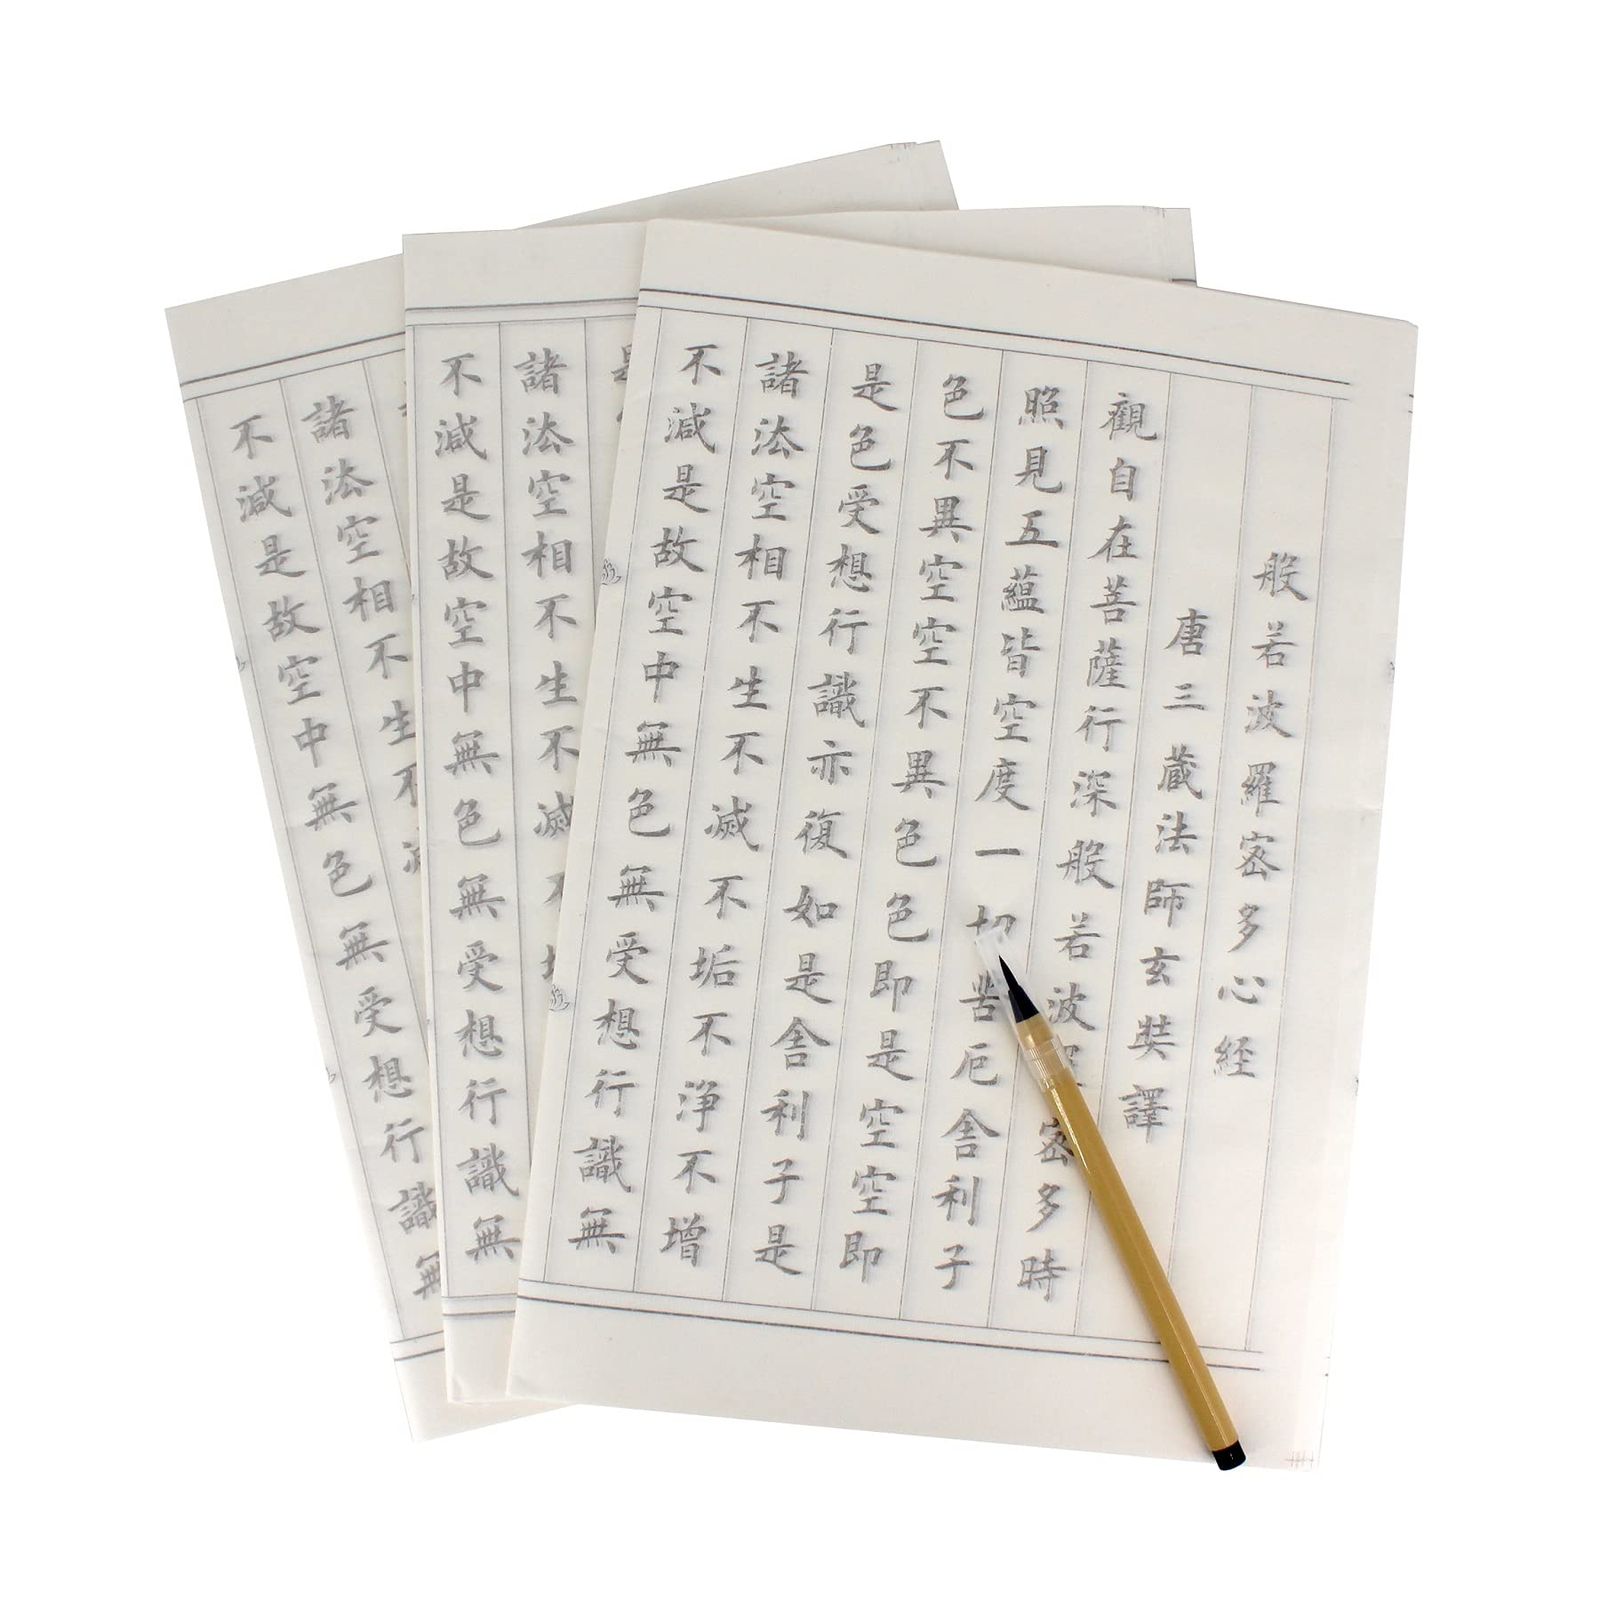 般若波羅密多心経
唐三蔵法師玄奘譯
觀自在菩薩行深般若波羅密多時
照見五蘊皆空度一切苦厄舎利子
色不異空空不異色色即是空空即
是色受想行識亦復如是舎利子是
諸法空相不生不滅不垢不浄不增
不減是故空中無色無受想行識無
諸法空相不生不滅不
不減是故空中無色無受想行識無
諸法空相不生不
不減是故空中無色無受想行識無